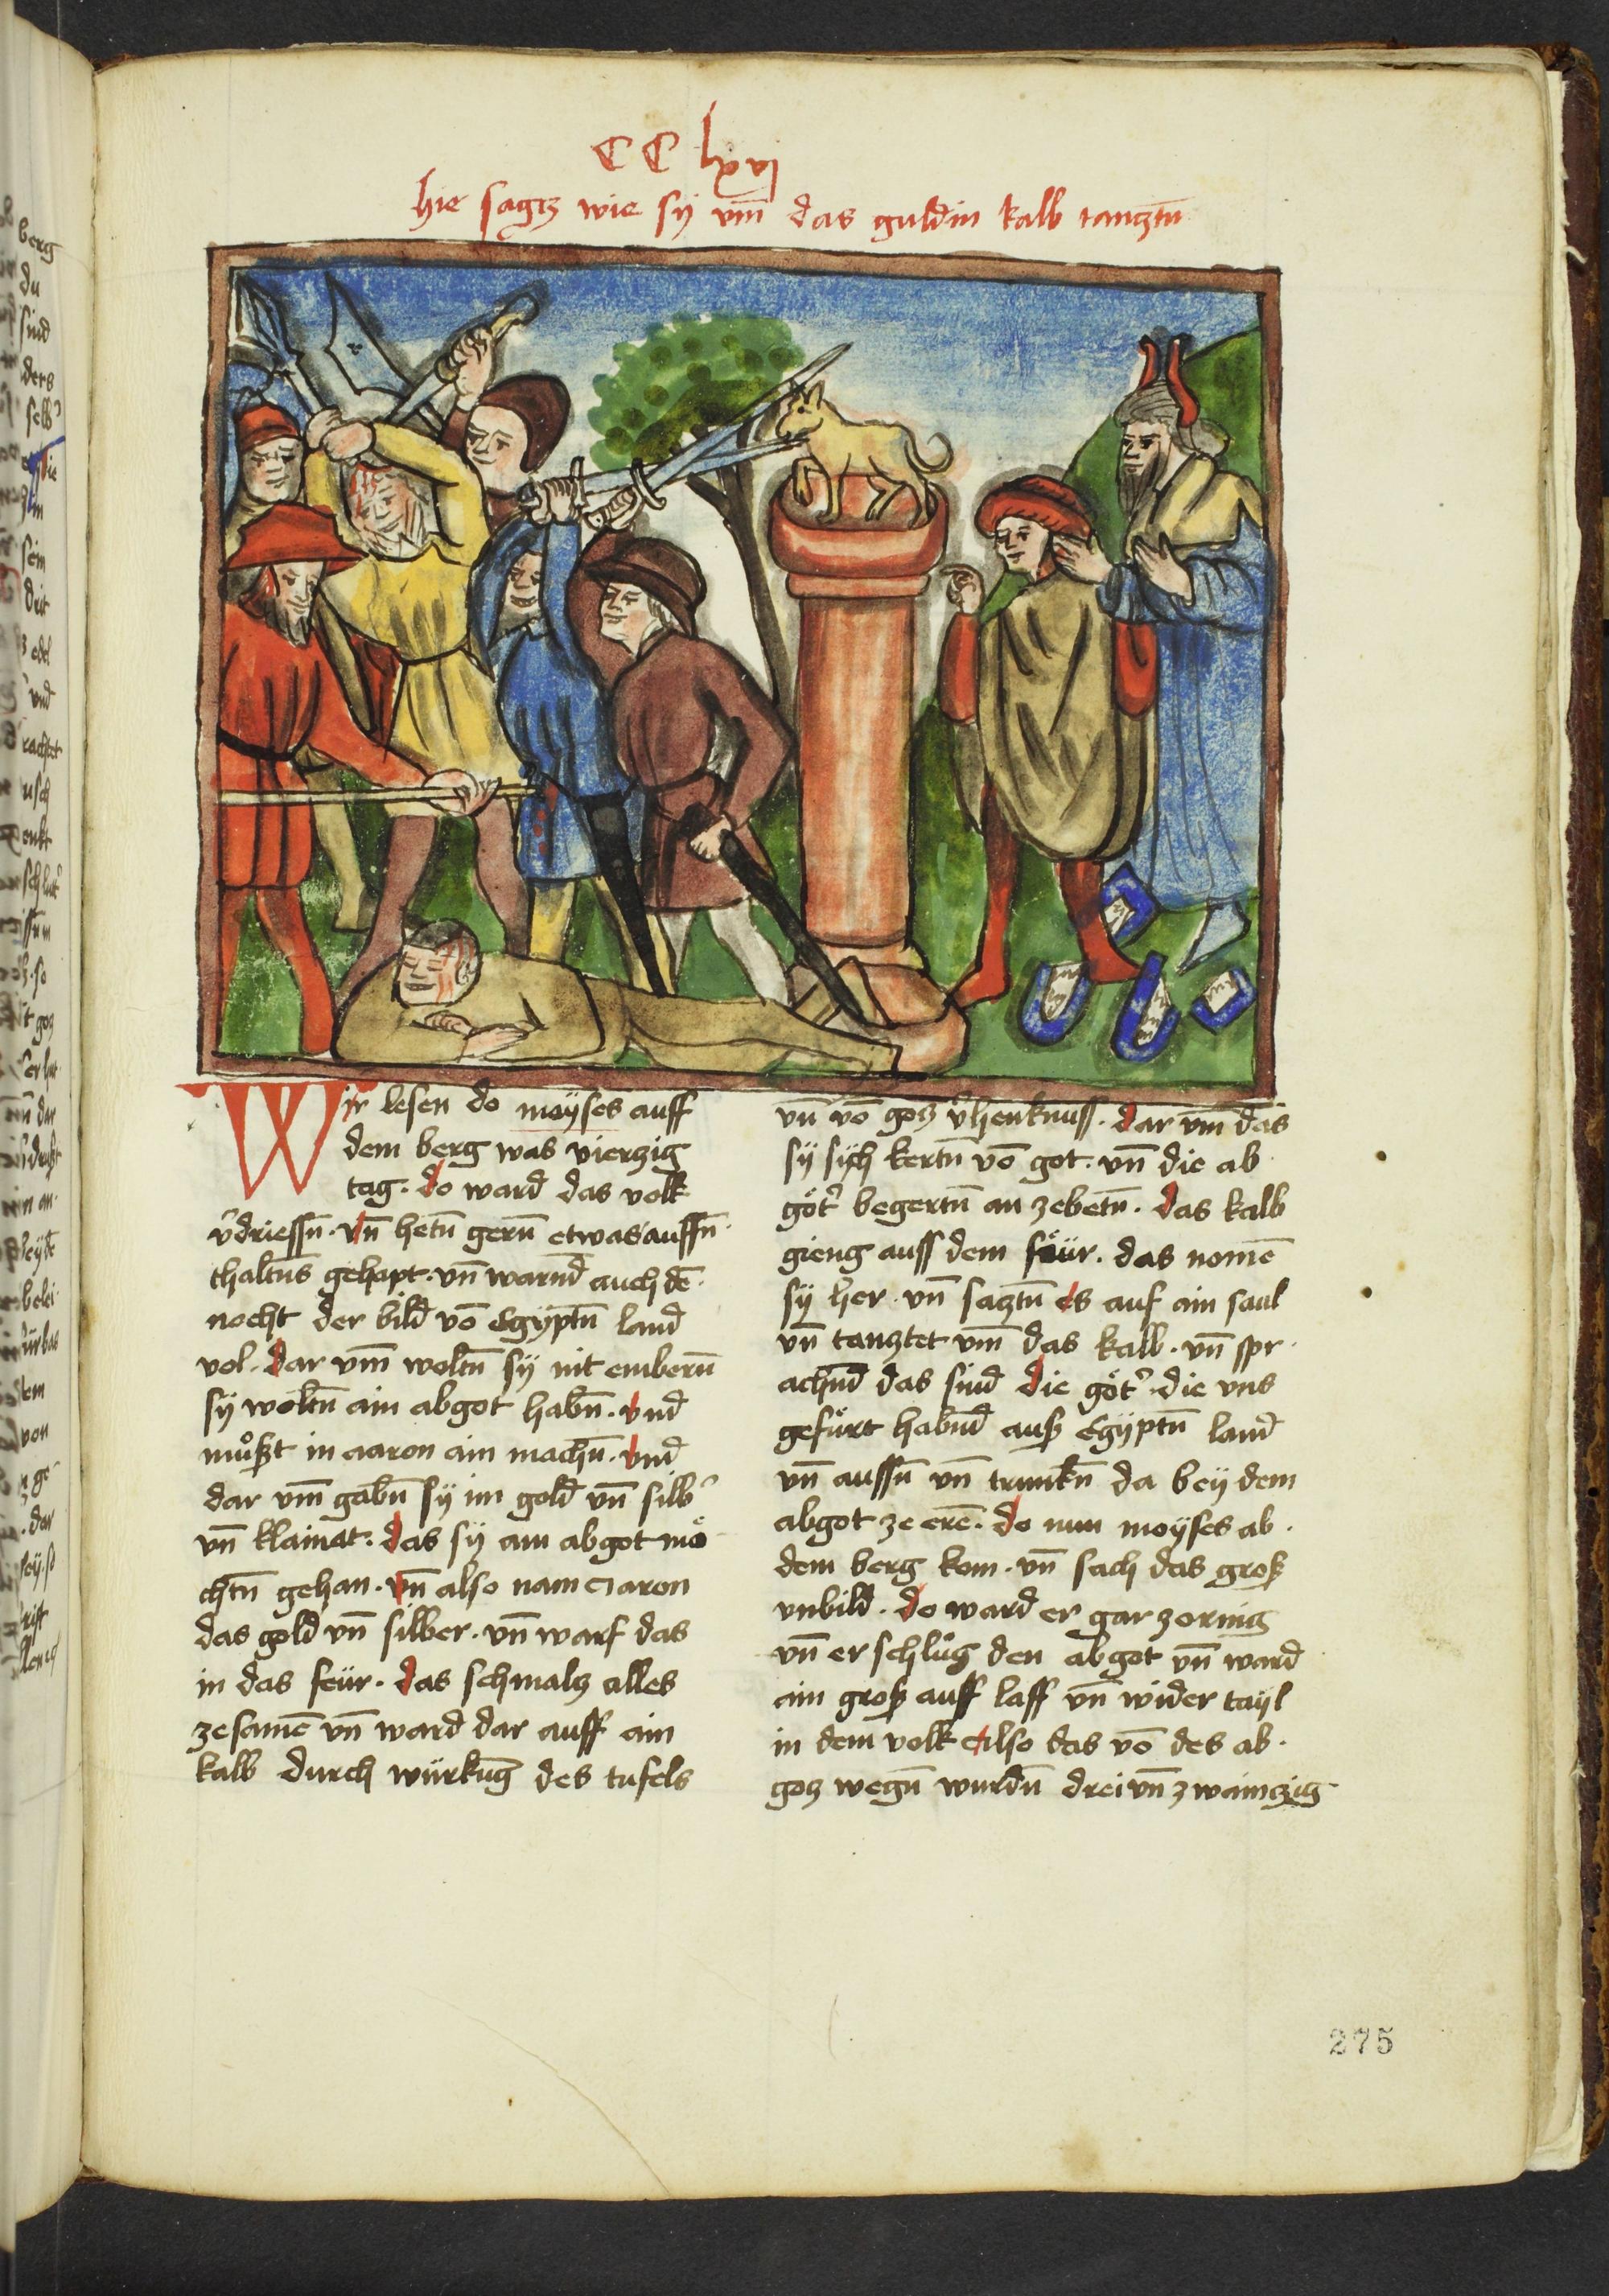 CC lxvj
hie sagtz wie sÿ vm̄ das guldin kalb tantztn̄
Wir lesen do moÿses auff
dem berg was vierzig
tag. do ward das volk
v̉driessn̄. vn̄ hetn̄ gern̄ etwas auffn̄
thaltn̄s gehapt. vn̄ warnd̄ auch dē.
nocht der bild vō Egÿptn̄ land
vol. dar vm̄ woltn̄ sÿ nit embern̄
sÿ woltn̄ ain abgot habn̄. vnd
muͦszt in aaron ain machn̄. vnd
dar vm̄ gabn̄ sÿ im gold vn̄ silb̉
vn̄ klainat. das sÿ ain abgot moͤ
chtn̄ gehan. vn̄ also nam aaron
das gold vn̄ silber. vn̄ warf das
in das feür. das schmaltz alles
zesamē vn̄ ward dar auff ain
kalb durch würkūg des tufels
vn̄ vō gotz v̉henknuss. dar vm̄ das
sÿ sÿch kertn̄ vō got. vn̄ die ab
goͤt̉ begertn̄ an zebetn̄. das kalb
gieng auss dem feür. das nomē
sÿ her. vn̄ saztn̄ es auf ain saul
vn̄ tanztet vm̄ das kalb. vn̄ spr
achnd̄ das sind die goͤt̉. die vns
gefuͤrt habnd̄ ausz Egÿptn̄ land
vn̄ aussn̄ vn̄ trunkn̄ da beÿ dem
abgot ze erē. do nun moÿses ab.
dem berg kom. vn̄ sach das grosz
vnbild. do ward er gar zornig
vn̄ er schluͦg den abgot vn̄ ward
ain grosz auff lauff vn̄ wider taÿl
in dem volk also das vō des ab.
gotz wegn̄ wurdn̄ drei vn̄ zwaintzig
275